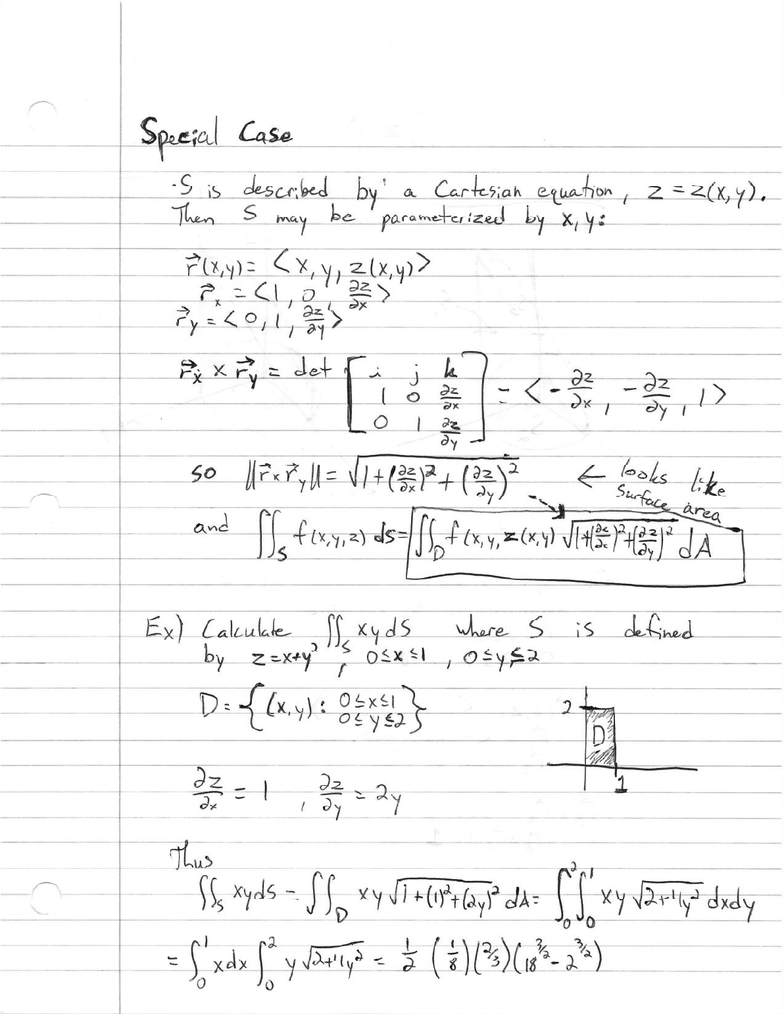 Special Case
·S is described by a Cartesian equation, z = z(x,y).
Then S may be parameterized by x,y:
r⃗(x,y) = <x, y, z(x,y)>
r⃗ₓ = <1, 0, ∂z/∂x>
r⃗_y = <0, 1, ∂z/∂y>
r⃗ₓ × r⃗_y = det [i j k; 1 0 ∂z/∂x; 0 1 ∂z/∂y] = <-∂z/∂x, -∂z/∂y, 1>
so ||r⃗ₓ r⃗_y|| = √(1+(∂z/∂x)²+(∂z/∂y)²) ← looks like surface area
and ∬_S f(x,y,z) dS = ∬_D f(x,y,z(x,y) √(1+(∂z/∂x)²+(∂z/∂y)²) dA
Ex) Calculate ∬_S xy dS where S is defined
by z=x+y², 0≤x≤1, 0≤y≤2
D = {(x,y): 0≤x≤1 0≤y≤2}
2
D
1
∂z/∂x = 1, ∂z/∂y = 2y
Thus
∬_S xy dS = ∬_D xy √(1+(1)²+(2y)²) dA = ∫₀² ∫₀¹ xy √(2+4y²) dx dy
= ∫₀¹ x dx ∫₀² y √(2+4y²) = 1/2 (1/8)(2/3)(18^(3/2) - 2^(3/2))